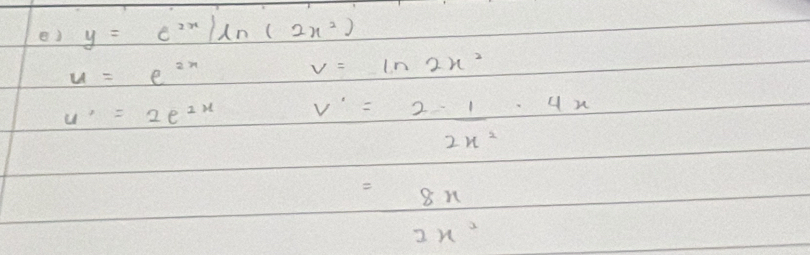 e) y = e²ˣ ln ( 2x² )
u = e²ˣ v = ln 2x²
u' = 2e²ˣ v' = 2 · 1 / 2x² · 4x
= 8x / 2x²